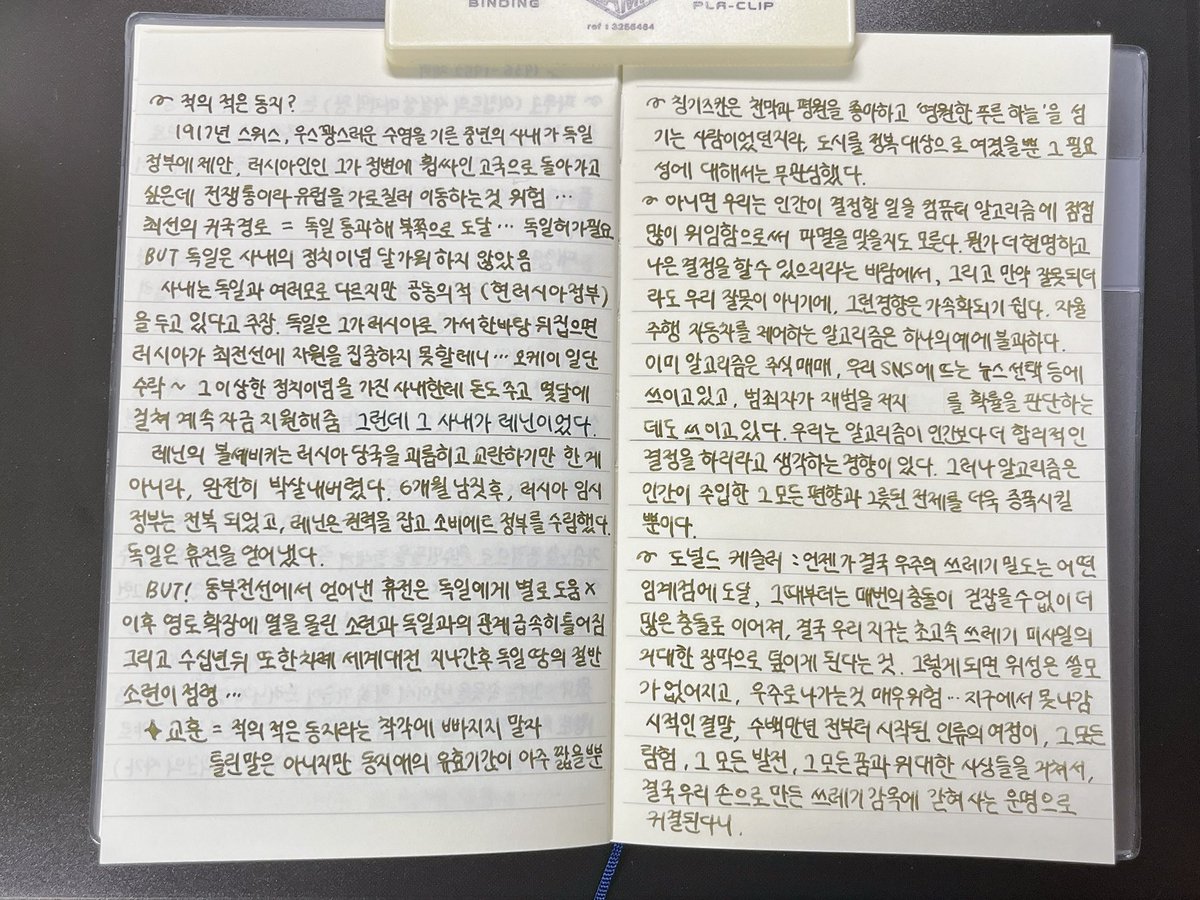 BINDING
PLA-CLIP
ref : 3256464
적의 적은 동지?
1917년 스위스, 우스꽝스러운 수염을 기른 중년의 사내가 독일
정부에 제안, 러시아인인 그가 정변에 휩싸인 고국으로 돌아가고
싶은데 전쟁통이라 유럽을 가로질러 이동하는 것 위험 …
최선의 귀국경로 = 독일 통과해 북쪽으로 도달 … 독일허가필요
BUT 독일은 사내의 정치이념 달가워 하지 않았음
사내는 독일과 여러모로 다르지만 공동의 적 (현 러시아정부)
을 두고 있다고 주장. 독일은 그가 러시아로 가서 한바탕 뒤집으면
러시아가 최전선에 자원을 집중하지 못할테니 … 오케이 일단
수락 ~ 그 이상한 정치이념을 가진 사내한테 돈도 주고 몇달에
걸쳐 계속 자금 지원해줌 그런데 그 사내가 레닌이었다.
레닌의 볼셰비키는 러시아 당국을 괴롭히고 교란하기만 한 게
아니라, 완전히 박살내버렸다. 6개월 남짓 후, 러시아 임시
정부는 전복 되었고, 레닌은 권력을 잡고 소비에트 정부를 수립했다.
독일은 휴전을 얻어냈다.
BUT! 동부전선에서 얻어낸 휴전은 독일에게 별로 도움 X
이후 영토 확장에 열을 올린 소련과 독일과의 관계 급속히 틀어짐
그리고 수십년 뒤 또 한차례 세계대전 지나간 후 독일 땅의 절반
소련이 점령 …
✦ 교훈 = 적의 적은 동지라는 착각에 빠지지 말자
틀린말은 아니지만 동지애의 유효기간이 아주 짧을뿐
칭기즈칸은 천막과 평원을 좋아하고 '영원한 푸른 하늘'을 섬
기는 사람이었던지라, 도시를 전복 대상으로 여겼을뿐 그 필요
성에 대해서는 무관심했다.
아니면 우리는 인간이 결정할 일을 컴퓨터 알고리즘에 점점
많이 위임함으로써 파멸을 맞을지도 모른다. 뭔가 더 현명하고
나은 결정을 할 수 있으리라는 바람에서, 그리고 만약 잘못되더
라도 우리 잘못이 아니기에, 그런 경향은 가속화되기 쉽다. 자율
주행 자동차를 제어하는 알고리즘은 하나의 예에 불과하다.
이미 알고리즘은 주식 매매, 우리 SNS에 뜨는 뉴스 선택 등에
쓰이고 있고, 범죄자가 재범을 저지 를 확률을 판단하는
데도 쓰이고 있다. 우리는 알고리즘이 인간보다 더 합리적인
결정을 하리라고 생각하는 경향이 있다. 그러나 알고리즘은
인간이 주입한 그 모든 편향과 그릇된 전제를 더욱 증폭시킬
뿐이다.
도널드 케슬러 : 언젠가 결국 우주의 쓰레기 밀도는 어떤
임계점에 도달, 그때부터는 매번의 충돌이 걷잡을 수 없이 더
많은 충돌로 이어져, 결국 우리 지구는 초고속 쓰레기 미사일의
거대한 장막으로 덮이게 된다는 것. 그렇게 되면 위성은 쓸모
가 없어지고, 우주로 나가는 것 매우위험 … 지구에서 못나감
시적인 결말, 수백만년 전부터 시작된 인류의 여정이, 그 모든
탐험, 그 모든 발전, 그 모든 꿈과 위대한 사상들을 거쳐서,
결국 우리 손으로 만든 쓰레기 감옥에 갇혀 사는 운명으로
귀결된다니.